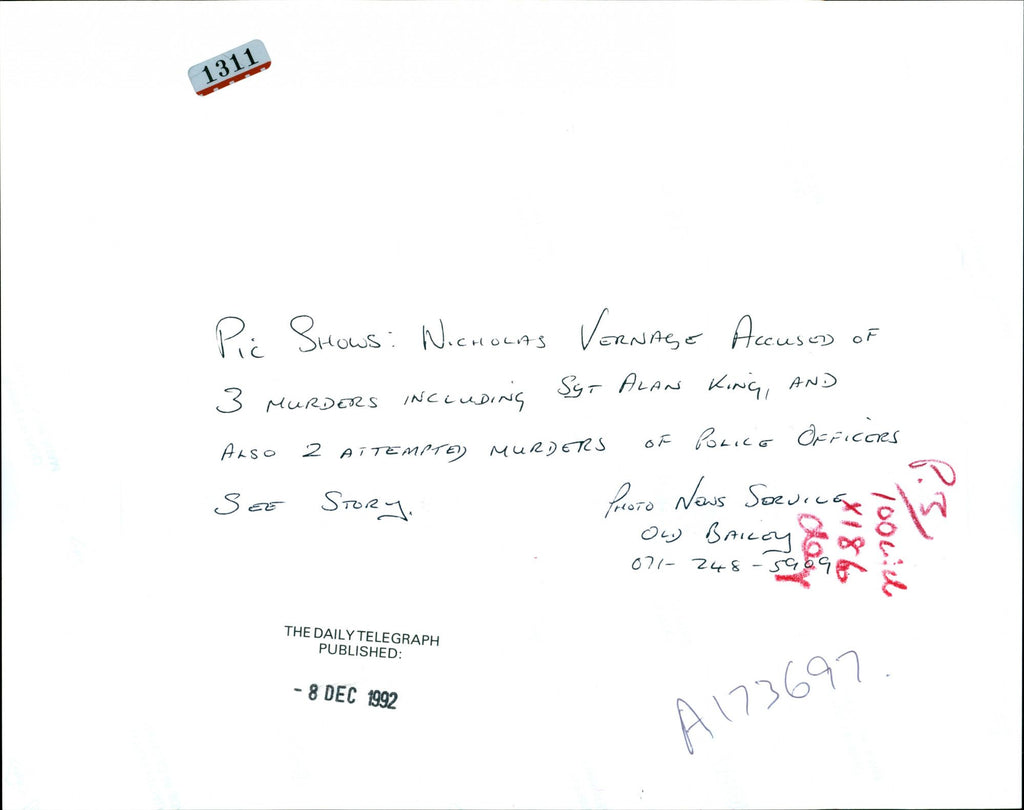 1311
Pic Shows: Nicholas Vernage Accused of
3 murders including Sgt Alan King, and
Also 2 attempted murders of Police Officers
See Story.
Photo News Service
Old Bailey
071-248-5909
P.3
100
x186
THE DAILY TELEGRAPH
PUBLISHED:
- 8 DEC 1992
A173697.